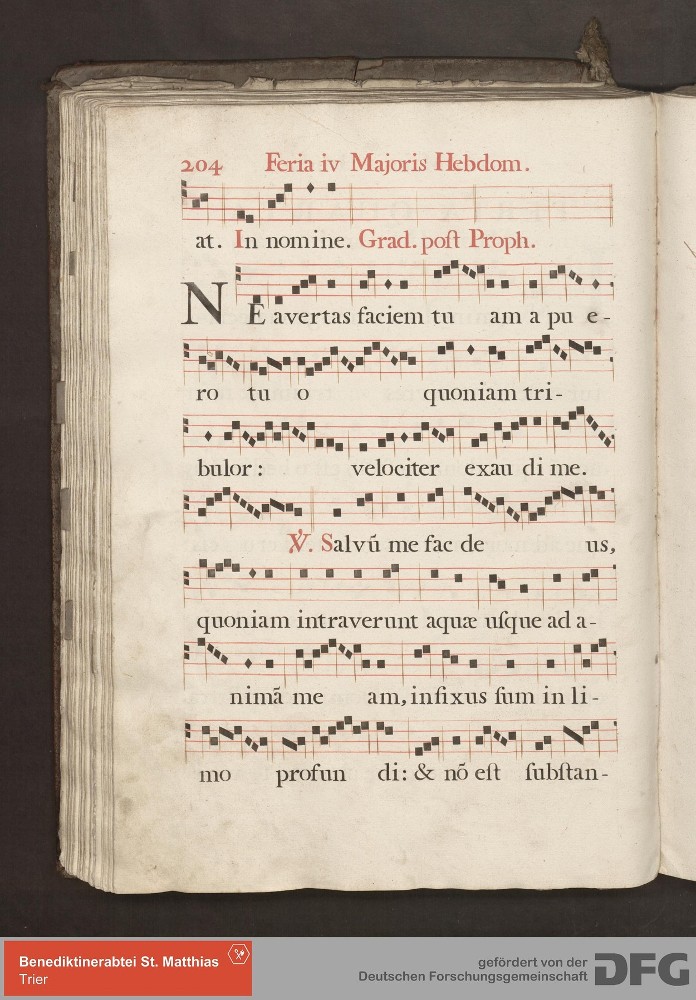 204 Feria iv Majoris Hebdom.
at. In nomine. Grad. poſt Proph.
NE avertas faciem tu am a pu e-
ro tu o quoniam tri-
bulor: velociter exau di me.
℣. Salvū me fac de us,
quoniam intraverunt aquæ uſque ad a-
nimā me am, infixus ſum in li-
mo profun di: & nō eſt ſubſtan-
Benediktinerabtei St. Matthias
Trier
gefördert von der
Deutschen Forschungsgemeinschaft
DFG